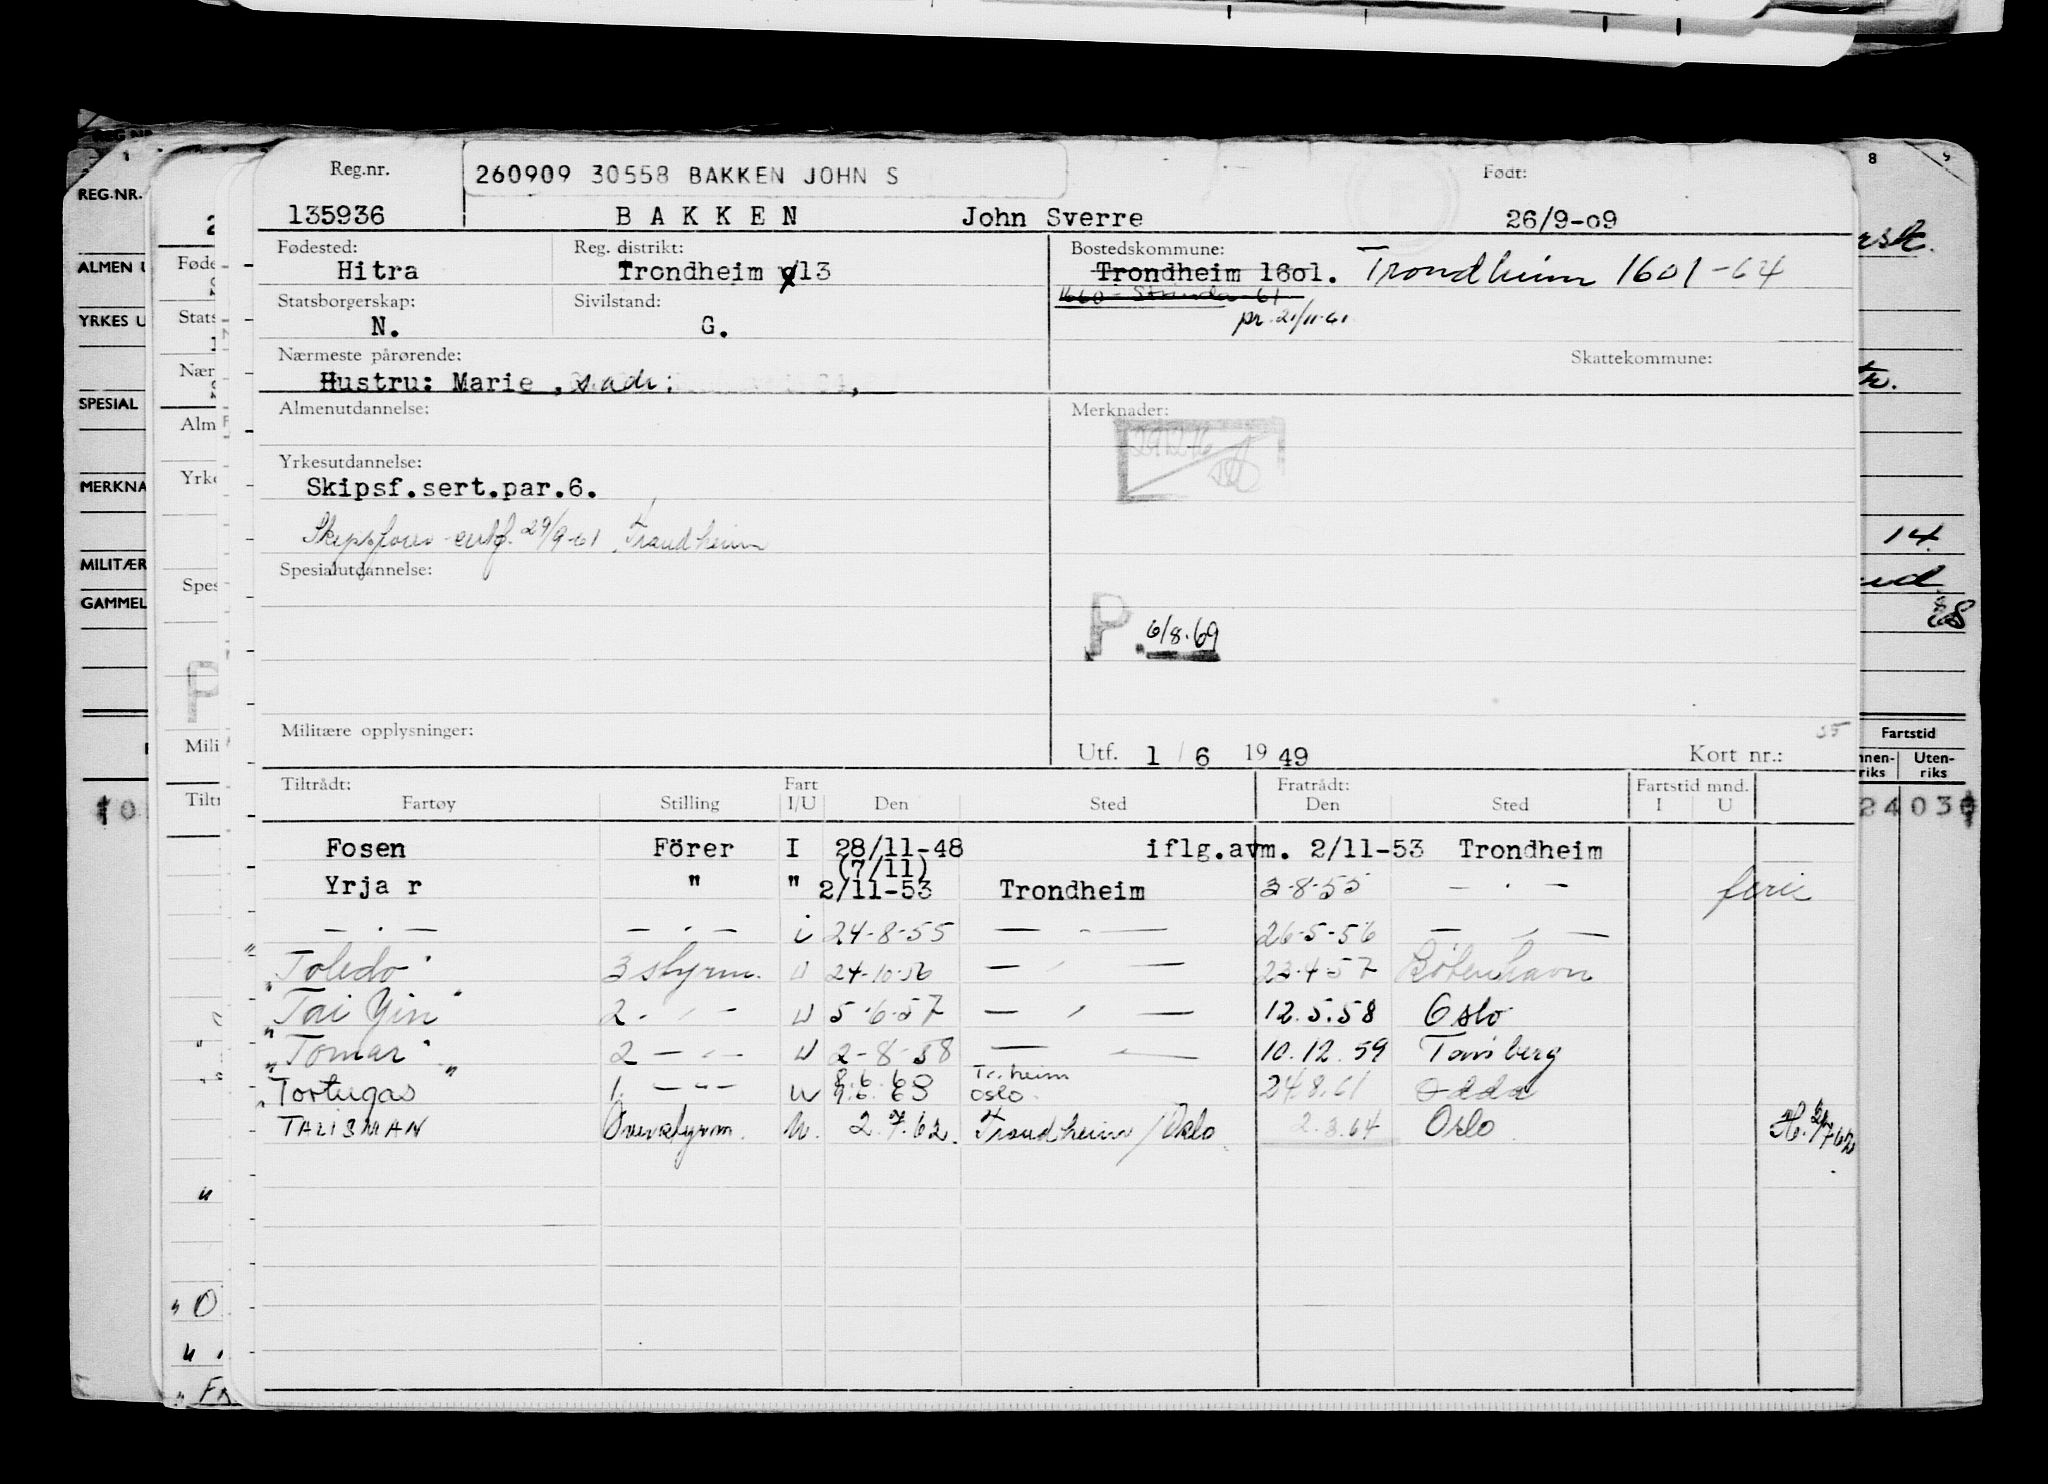 Reg.nr.
260909 30558 BAKKEN JOHN S
Født:
135936 BAKKEN John Sverre 26/9-09
Fødested: Reg. distrikt: Bostedskommune:
Hitra Trondheim 13 Trondheim 16o1. Trondheim 1601-64
Statsborgerskap: Sivilstand: 1660 - Strinda - 61
N. G. pr. 21/11-61
Nærmeste pårørende: Skattekommune:
Hustru: Marie , s adr:
Almenutdannelse: Merknader:
Yrkesutdannelse:
Skipsf.sert.par.6.
29/9-61 Trondheim
Spesialutdannelse:
P. 6/8.69
Militære opplysninger:
Utf. 1 / 6 1949 Kort nr.:
Tiltrådt: Fart Fratrådt: Fartstid mnd.
Fartøy Stilling I/U Den Sted Den Sted I U
Fosen Förer I 28/11-48 iflg.avm. 2/11-53 Trondheim
(7/11)
Yrja r " " 2/11-53 Trondheim 3-8-55 — . — ferie
— . — — . — i 24-8-55 — - — 26-5-56 — , —
"Toledo" 3 styrm. U 24-10-56 — - — 23-4-57 København
"Tai Yin" 2. - " - U 5-6-57 — , — 12.5.58 Oslo
"Tomar" 2 — " — U 2-8-58 — — 10.12.59 Tønsberg
8.6.60 Tr.heim
"Tortugas" 1. — " — U 9.6.60 Oslo. 24.8.61 Odda
TALISMAN Overstyrm. U. 2.7.62. Trondheim/Oslo. 2.3.64 Oslo
REG.NR.
ALMEN U
YRKES U
SPESIAL
MERKNA
MILITÆR
GAMMEL
Føde
Stats
Nær
Alm
Yrke
Spes
P
Mili
Tiltr
8
14
Fartstid
nnen-
riks
Uten-
riks
2403